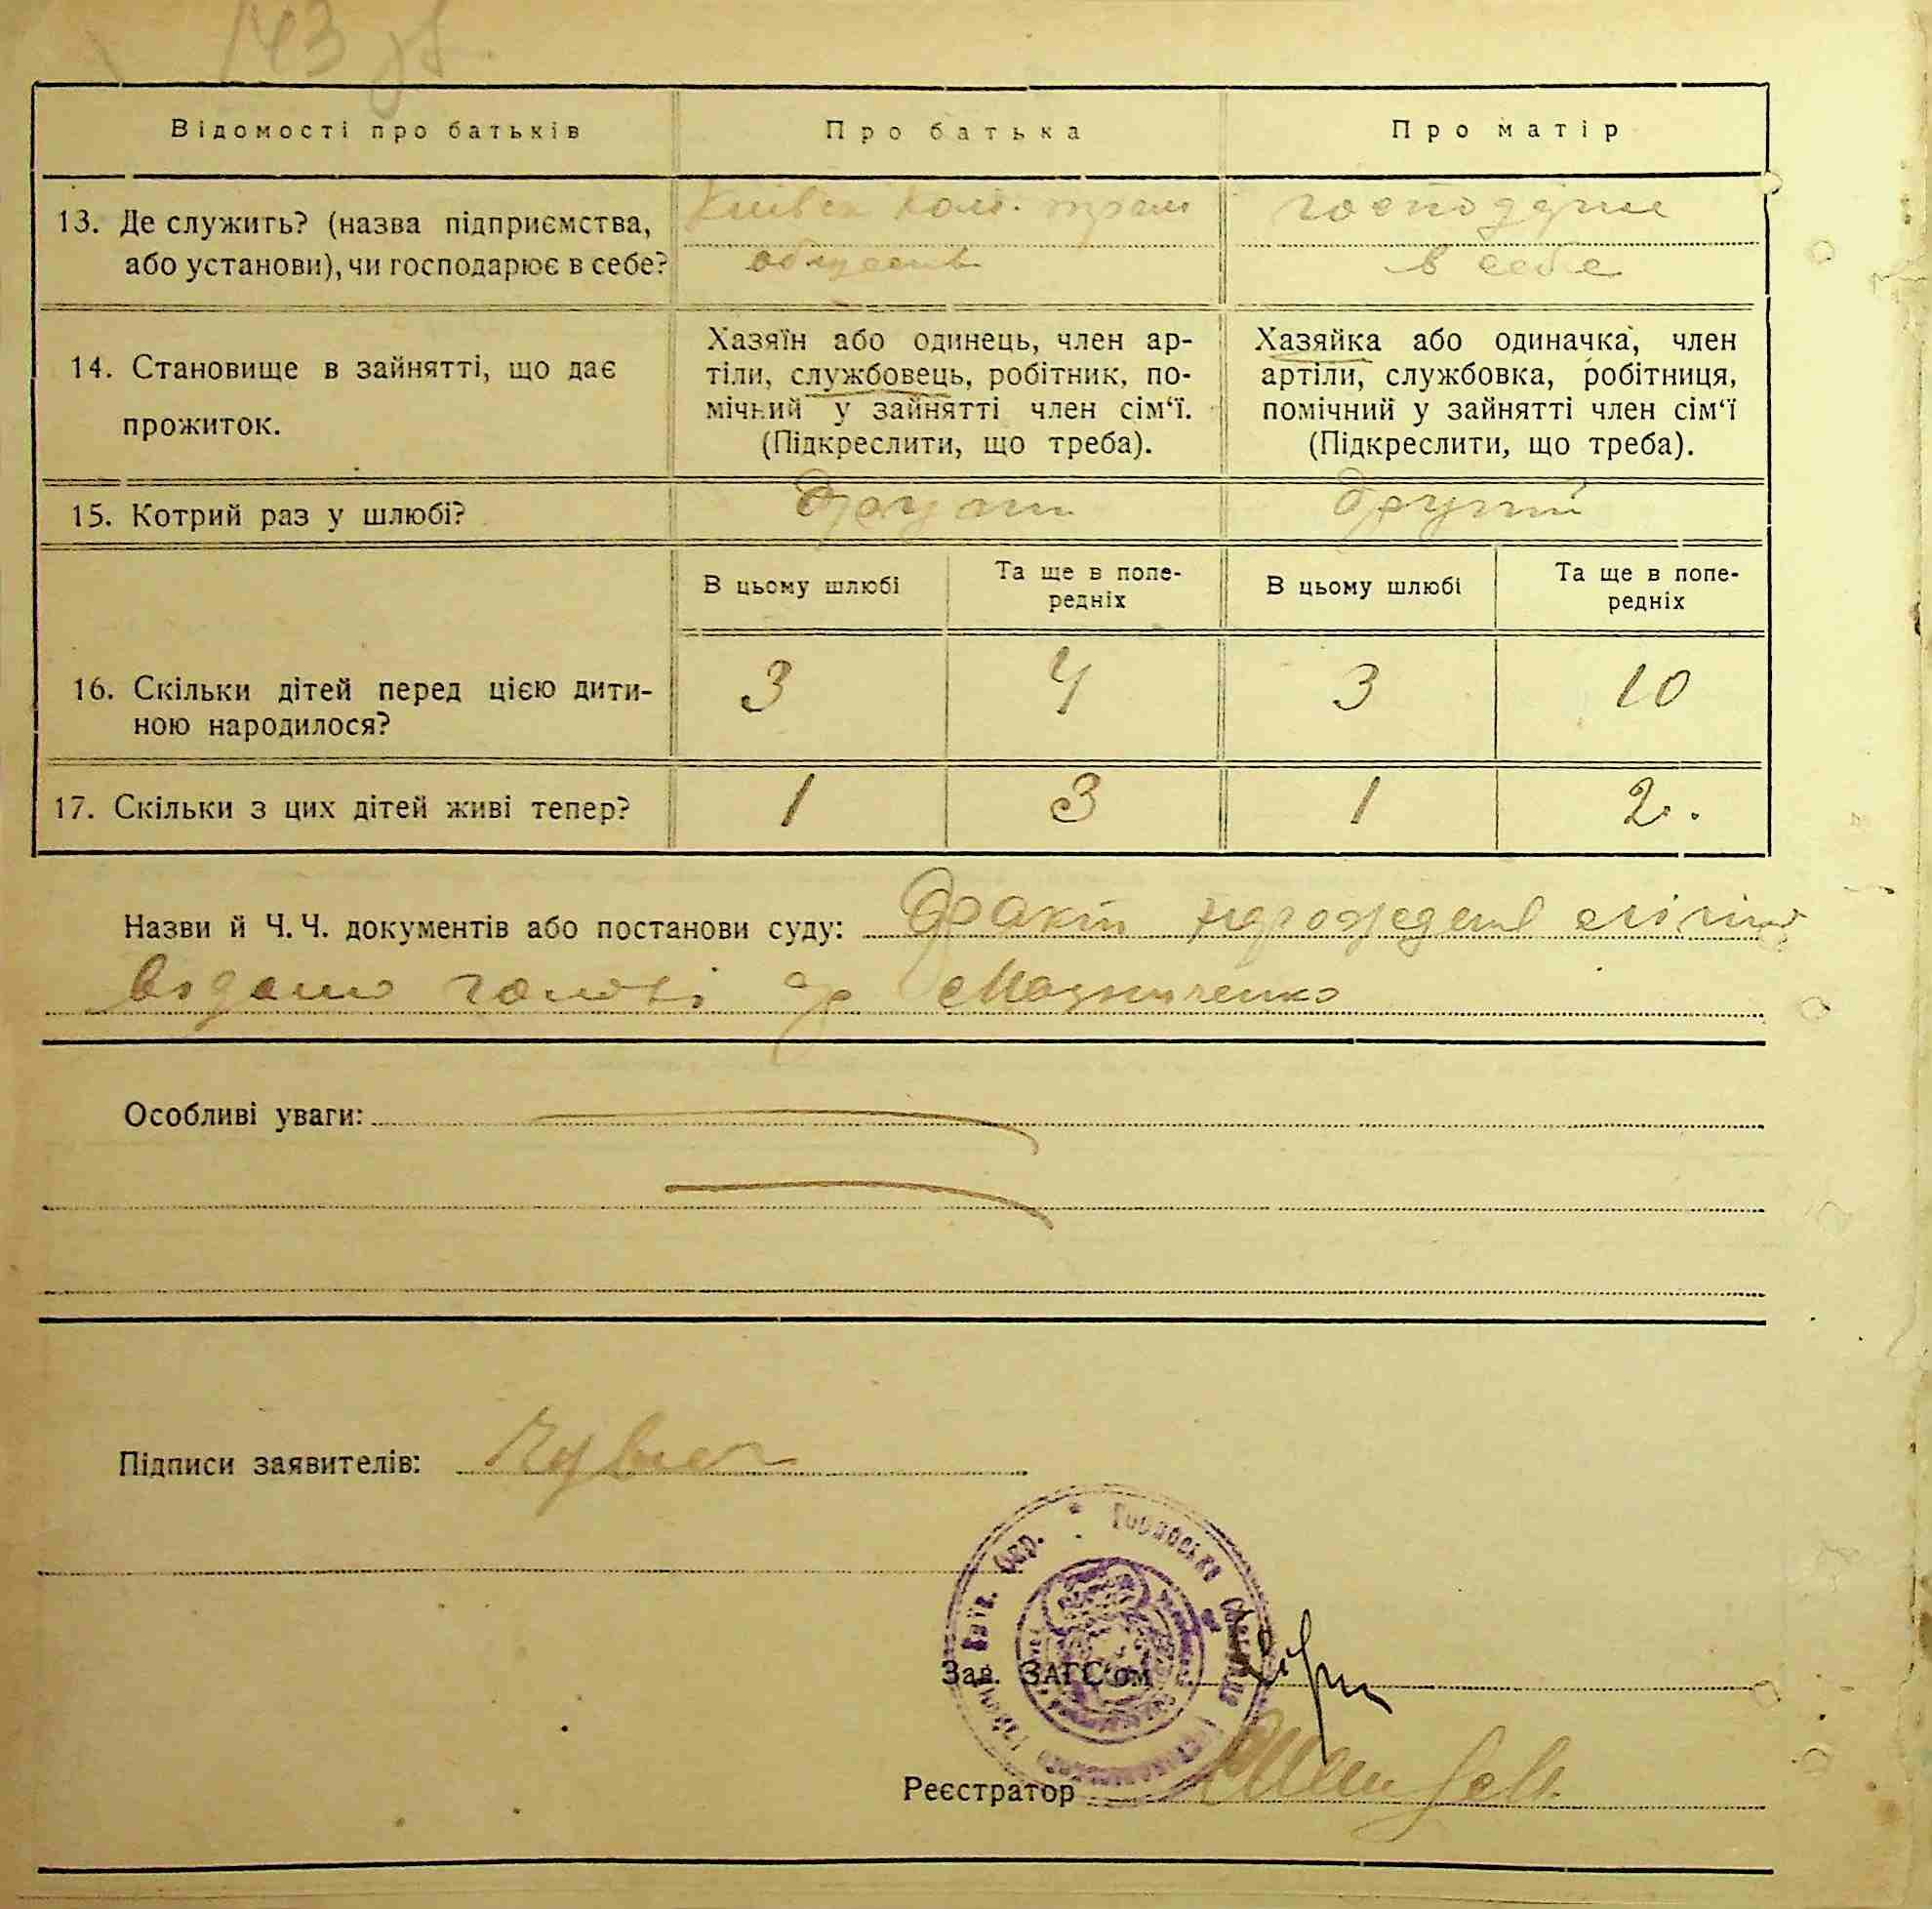 143 зв.
Відомості про батьків
Про батька
Про матір
13. Де служить? (назва підприємства, або установи), чи господарює в себе?
Київск
господарює
в себе
14. Становище в зайнятті, що дає прожиток.
Хазяїн або одинець, член ар-
тіли, службовець, робітник, по-
мічний у зайнятті член сім‘ї.
(Підкреслити, що треба).
Хазяйка або одиначка, член
артіли, службовка, робітниця,
помічний у зайнятті член сім‘ї
(Підкреслити, що треба).
15. Котрий раз у шлюбі?
другий
другий
В цьому шлюбі
Та ще в попе-
редніх
В цьому шлюбі
Та ще в попе-
редніх
16. Скільки дітей перед цією дити-
ною народилося?
3
4
3
10
17. Скільки з цих дітей живі тепер?
1
3
1
2.
Назви й Ч. Ч. документів або постанови суду: факт
Особливі уваги:
Підписи заявителів:
Київ. Окр.
Зав. ЗАГС‘ом
Реєстратор